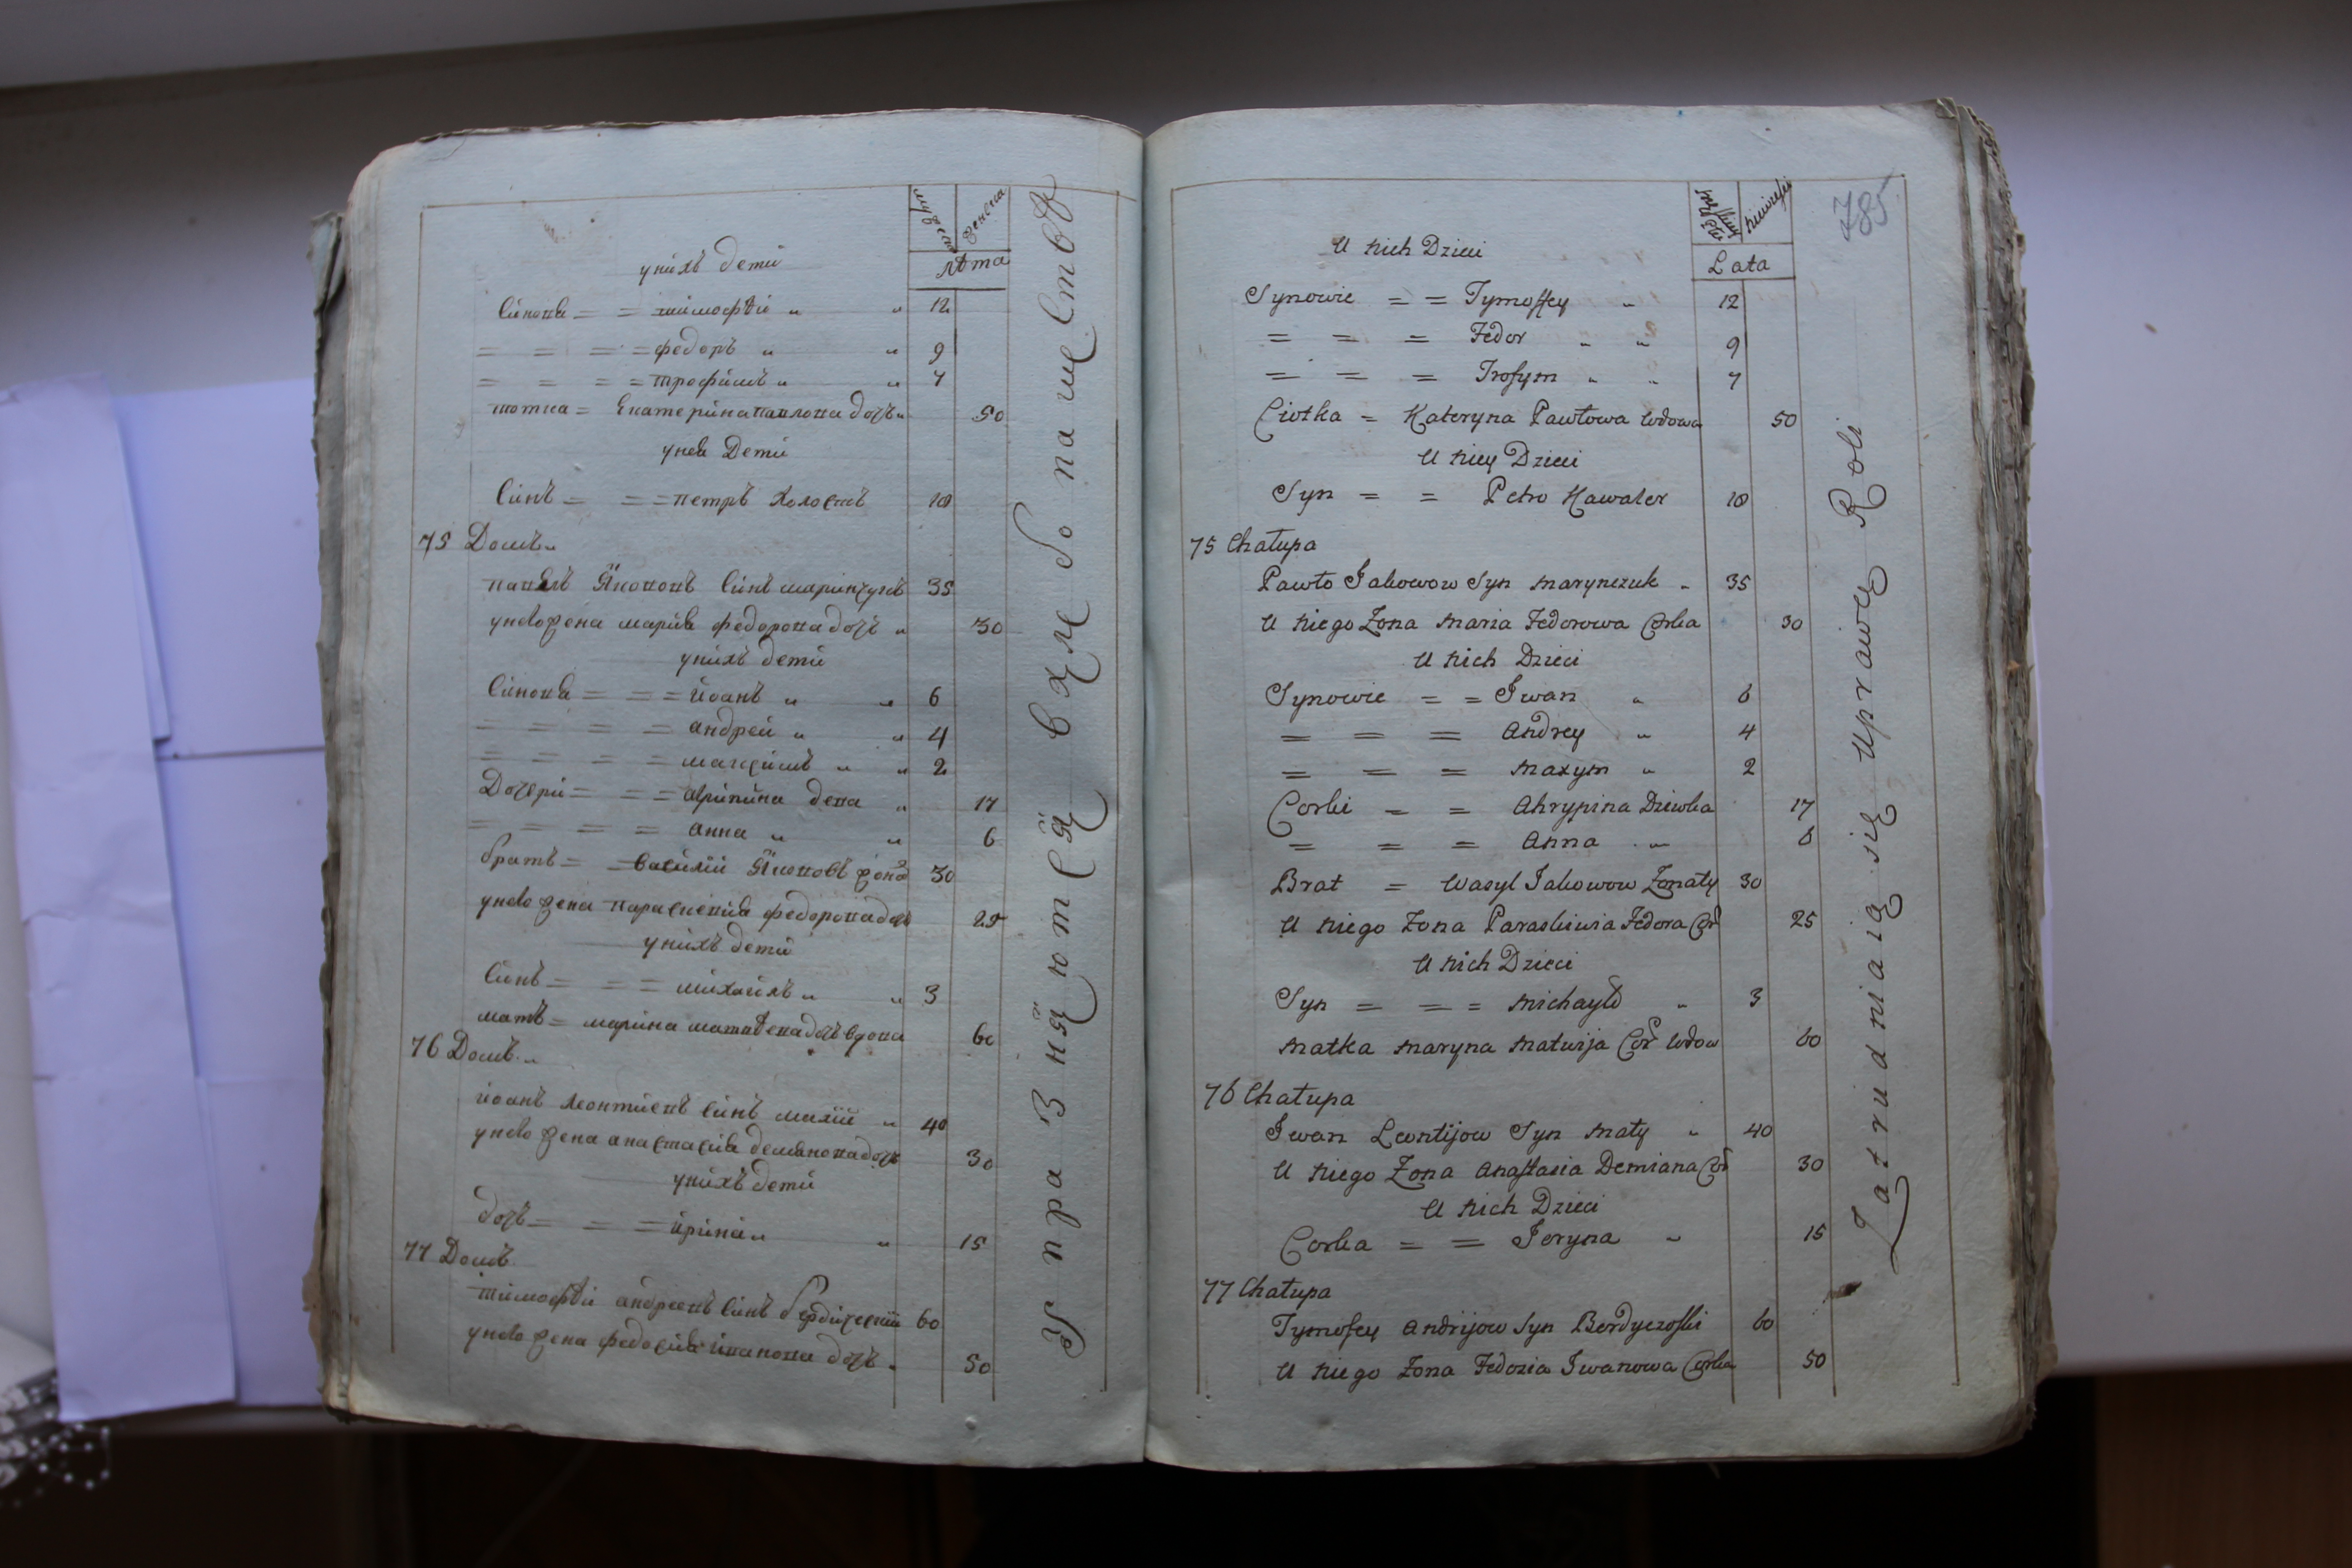 женска
лѣта
унихъ дети
Синовя = = тимофѣй „ „ 12
= = = = федоръ „ „ 9
= = = = трофимъ „ „ 7
тотка = Екатерина павлова дочъ „ 50
унея Дети
Синъ = = = петръ холостъ 18
75 Домъ „
павелъ Якововъ Синъ маринчукъ 35
унево жена мария федорова дочъ „ 30
унихъ дети
Синовя = = = йоанъ „ „ 6
= = = = андрей „ „ 4
= = = = максимъ „ „ 2
Дочери = = = агрипина девка „ 17
= = = = анна „ „ 6
братъ = = василий Якововъ жона 30
унево жена параскевия федорова дочъ 25
унихъ дети
Синъ = = = михайлъ „ „ 3
матъ = марина матвѣева дочъ вдова 60
76 Домъ „
йоанъ леонтиевъ Синъ малий „ 40
унево жена анастасия демянова дочъ 30
унихъ дети
дочъ = = = ирина „ „ 15
77 Домъ
тимофѣй андреевъ Синъ бердический 60
унево жена федосия иванова дочъ „ 50
Упразняются в хлебопашестве
785
Lata
U nich Dzieci
Synowie = = Tymoffey „ 12
= = = Fedor „ „ 9
= = = Trofym „ „ 7
Ciotka = Kateryna Pawłowa wdowa 50
U niey Dzieci
Syn = = Petro Kawaler 18
75 Chałupa
Pawło Jakowow Syn Marynczuk „ 35
U niego Żona Maria Fedorowa Corka 30
U nich Dzieci
Synowie = = Iwan „ 6
= = = Andrey „ 4
= = = Maxym „ 2
Corki = = Ahrypina Dziewka 17
= = = Anna „ 6
Brat = Wasyl Jakowow Żonaty 30
U niego Żona Paraskiewia Fedora Cor 25
U nich Dzieci
Syn = = = Michayło „ 3
Matka Maryna Matwija Cor wdow 60
76 Chałupa
Iwan Leontijow Syn Mały „ 40
U niego Żona Anastasia Demiana Cor 30
U nich Dzieci
Corka = = Joryna „ 15
77 Chałupa
Tymofey Andrijow Syn Berdyczoski 60
U niego Żona Fedozia Iwanowa Corka 50
Zatrudniaią się uprawę Roli